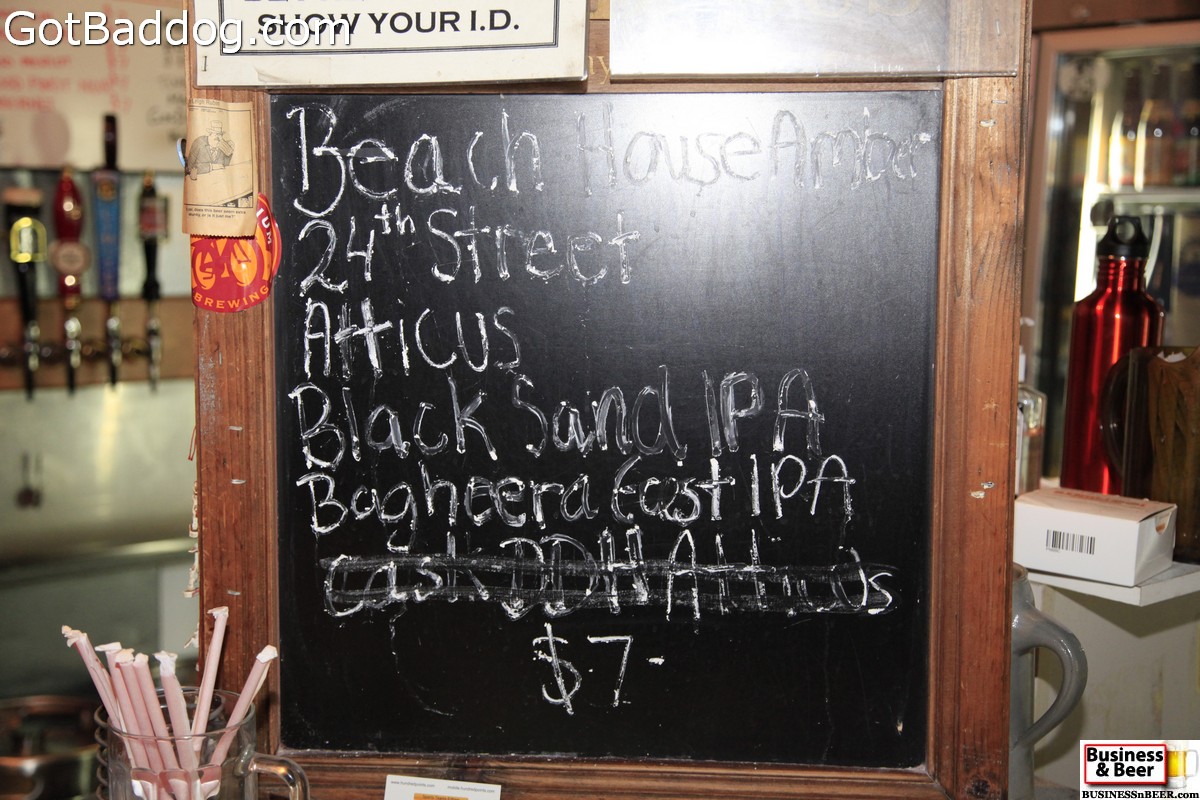 GotBaddog.com
SHOW YOUR I.D.
Beach House Amber
24th Street
Atticus
Black Sand IPA
Bagheera East IPA
Cask DDH Atticus
$7-
BREWING
Business
& Beer
BUSINESSnBEER.com